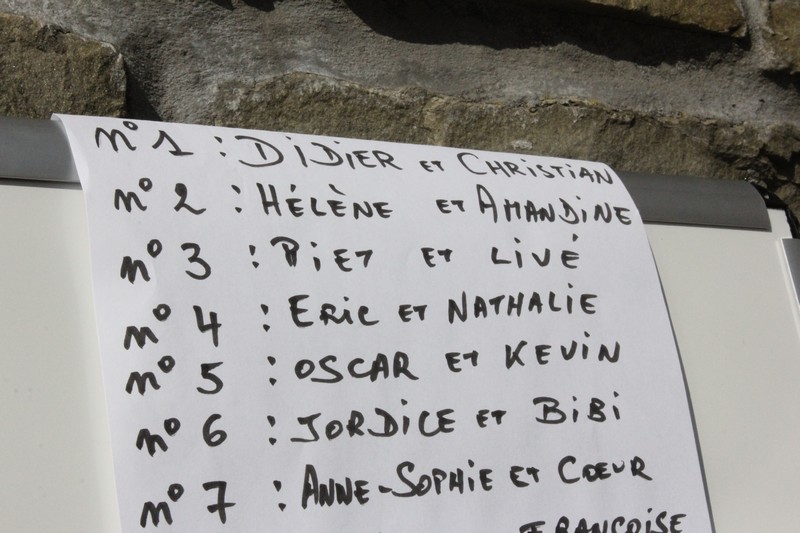 n° 1 : DIDIER ET CHRISTIAN
n° 2 : HÉLÈNE ET AMANDINE
n° 3 : PIET ET LIVÉ
n° 4 : ERIC ET NATHALIE
n° 5 : OSCAR ET KEVIN
n° 6 : JORDICE ET BIBI
n° 7 : ANNE-SOPHIE ET COEUR
FRANÇOISE